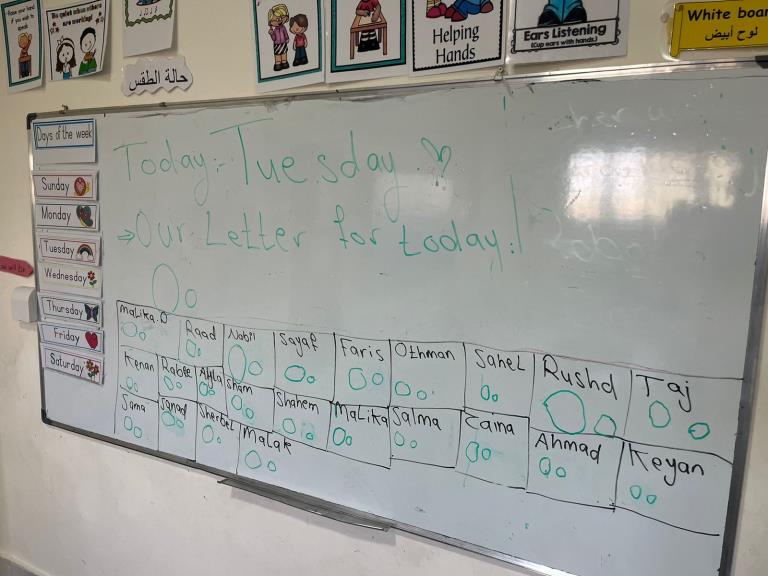 Raise your hand if you wish to speak
Be quiet when others are working!
حالة الطقس
Helping
Hands
Ears Listening
(Cup ears with hands.)
White boar
لوح أبيض
Days of the week
Sunday
Monday
Tuesday
Wednesday
Thursday
Friday
Saturday
Today:- Tuesday
⇒Our Letter for today:
Oo
Malika.O Raad Nabil Sayaf Faris Othman Sahel Rushd Taj
Kenan Rabee Ayla Sham Shahem Malika Salma Zaina Ahmad Keyan
Sama Sanad Sherbel Malak